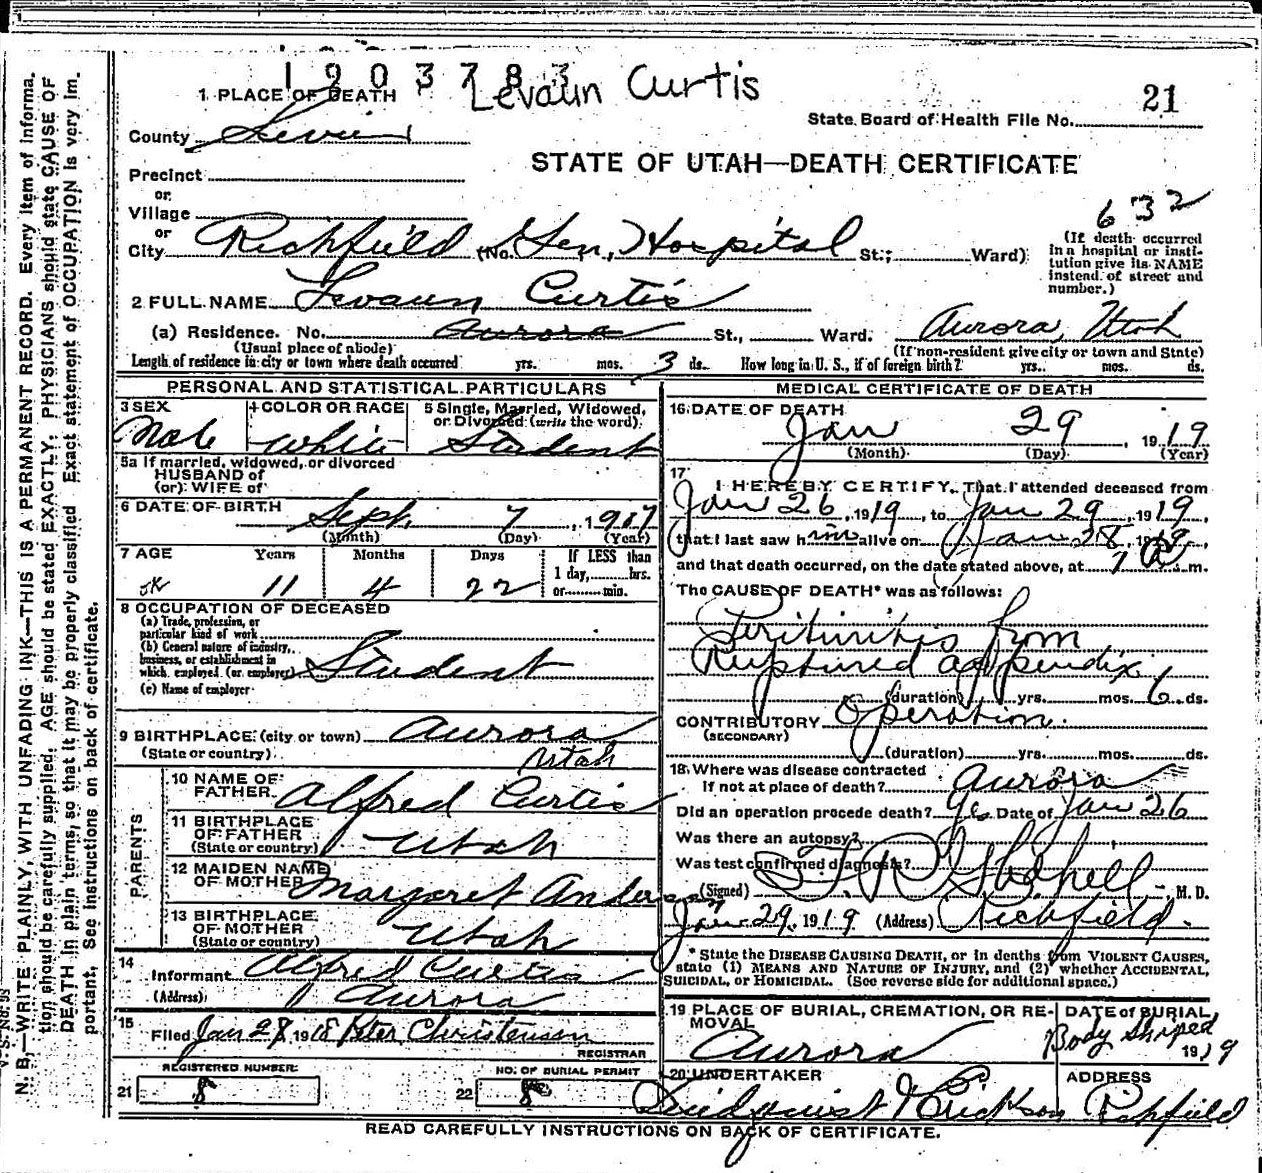 1903783
Levaun Curtis
1 PLACE OF DEATH
21
State Board of Health File No.
County Sevier
STATE OF UTAH—DEATH CERTIFICATE
Precinct
or
Village
632
or
City Richfield (No. Gen. Hospital St.; Ward)
(If death occurred in a hospital or insti-
tution give its NAME
instead of street and
number.)
2 FULL NAME Levaun Curtis
(a) Residence. No. Aurora St., Ward. Aurora, Utah
(Usual place of abode) (If non-resident give city or town and State)
Length of residence in city or town where death occurred yrs. mos. 3 ds. How long in U. S., if of foreign birth? yrs. mos. ds.
PERSONAL AND STATISTICAL PARTICULARS
3 SEX
Male
4 COLOR OR RACE
White
5 Single, Married, Widowed,
or Divorced (write the word)
Student
5a If married, widowed, or divorced
HUSBAND of
(or) WIFE of
6 DATE OF BIRTH
Sept. 7, 1907
(Month) (Day) (Year)
7 AGE Years Months Days If LESS than
1 day, hrs.
or min.
11 4 22
8 OCCUPATION OF DECEASED
(a) Trade, profession, or
particular kind of work
(b) General nature of industry,
business, or establishment in
which employed (or employer) Student
(c) Name of employer
9 BIRTHPLACE (city or town) Aurora
(State or country) Utah
PARENTS
10 NAME OF
FATHER Alfred Curtis
11 BIRTHPLACE
OF FATHER
(State or country) Utah
12 MAIDEN NAME
OF MOTHER Margaret Anderson
13 BIRTHPLACE
OF MOTHER
(State or country) Utah
14
Informant Alfred Curtis
(Address) Aurora
15
Filed Jan 28 1918 Peter Christenson
REGISTRAR
REGISTERED NUMBER
21 8
NO. OF BURIAL PERMIT
22 8
MEDICAL CERTIFICATE OF DEATH
16 DATE OF DEATH
Jan 29, 1919
(Month) (Day) (Year)
17
I HEREBY CERTIFY, That I attended deceased from
Jan 26, 1919, to Jan 29, 1919,
that I last saw him alive on Jan 28, 1919,
and that death occurred, on the date stated above, at 7 A m.
The CAUSE OF DEATH* was as follows:
Peritinitis from
Ruptured appendix
(duration) yrs. mos. 6 ds.
CONTRIBUTORY Operation.
(SECONDARY)
(duration) yrs. mos. ds.
18 Where was disease contracted
If not at place of death? Aurora
Did an operation precede death? Yes Date of Jan 26
Was there an autopsy?
Was test confirmed diagnosis?
(Signed) M. D.
Jan 29, 1919 (Address) Richfield
* State the DISEASE CAUSING DEATH, or in deaths from VIOLENT CAUSES,
state (1) MEANS AND NATURE OF INJURY, and (2) whether ACCIDENTAL,
SUICIDAL, or HOMICIDAL. (See reverse side for additional space.)
19 PLACE OF BURIAL, CREMATION, OR RE-
MOVAL
Aurora
DATE of BURIAL
Body Shiped
1919
20 UNDERTAKER
ADDRESS
Richfield
READ CAREFULLY INSTRUCTIONS ON BACK OF CERTIFICATE.
N. B.—WRITE PLAINLY, WITH UNFADING INK—THIS IS A PERMANENT RECORD. Every item of informa-
tion should be carefully supplied. AGE should be stated EXACTLY. PHYSICIANS should state CAUSE OF
DEATH in plain terms, so that it may be properly classified. Exact statement of OCCUPATION is very im-
portant. See instructions on back of certificate.